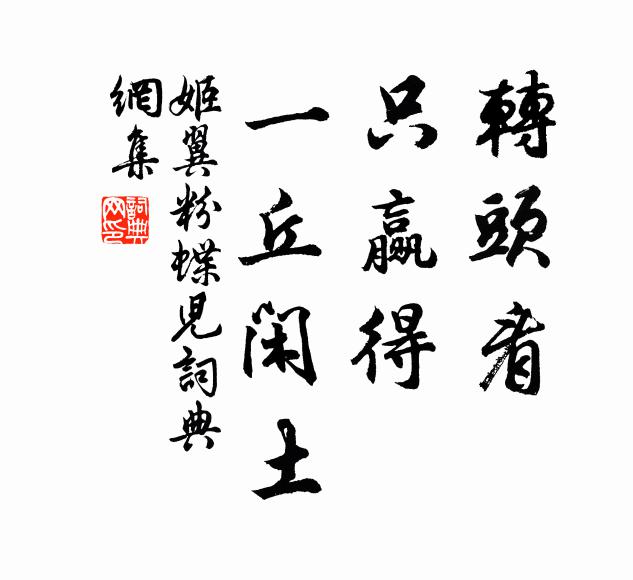 轉頭看
只贏得
一丘閑土
姬翼粉蝶兒詞典
網集
詞典網印